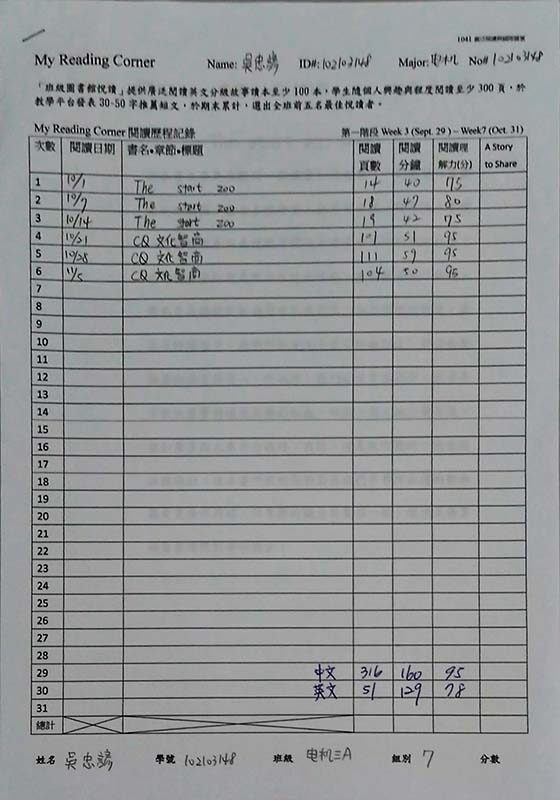 1041
My Reading Corner Name: 吳忠諺 ID#: 102103148 Major: 電机 No# 102103148
「班級圖書館悅讀」提供廣泛閱讀英文分級故事讀本至少 100 本，學生隨個人興趣與程度閱讀至少 300 頁，於
教學平台發表 30-50 字推薦短文，於期末累計，選出全班前五名最佳悅讀者。
My Reading Corner 閱讀歷程記錄 第一階段 Week 3 (Sept. 29 ) – Week7 (Oct. 31)
次數 閱讀日期 書名•章節•標題 閱讀頁數 閱讀分鐘 閱讀理解力(分) A Story to Share
1 10/1 The start zoo 14 40 75
2 10/7 The start zoo 18 47 80
3 10/14 The start zoo 19 42 75
4 10/21 CQ 文化智商 101 51 95
5 10/28 CQ 文化智商 111 59 95
6 11/5 CQ 文化智商 104 50 95
7
8
9
10
11
12
13
14
15
16
17
18
19
20
21
22
23
24
25
26
27
28
29 中文 316 160 95
30 英文 51 129 78
31
總計
姓名 吳忠諺 學號 102103148 班級 电机三A 組別 7 分數